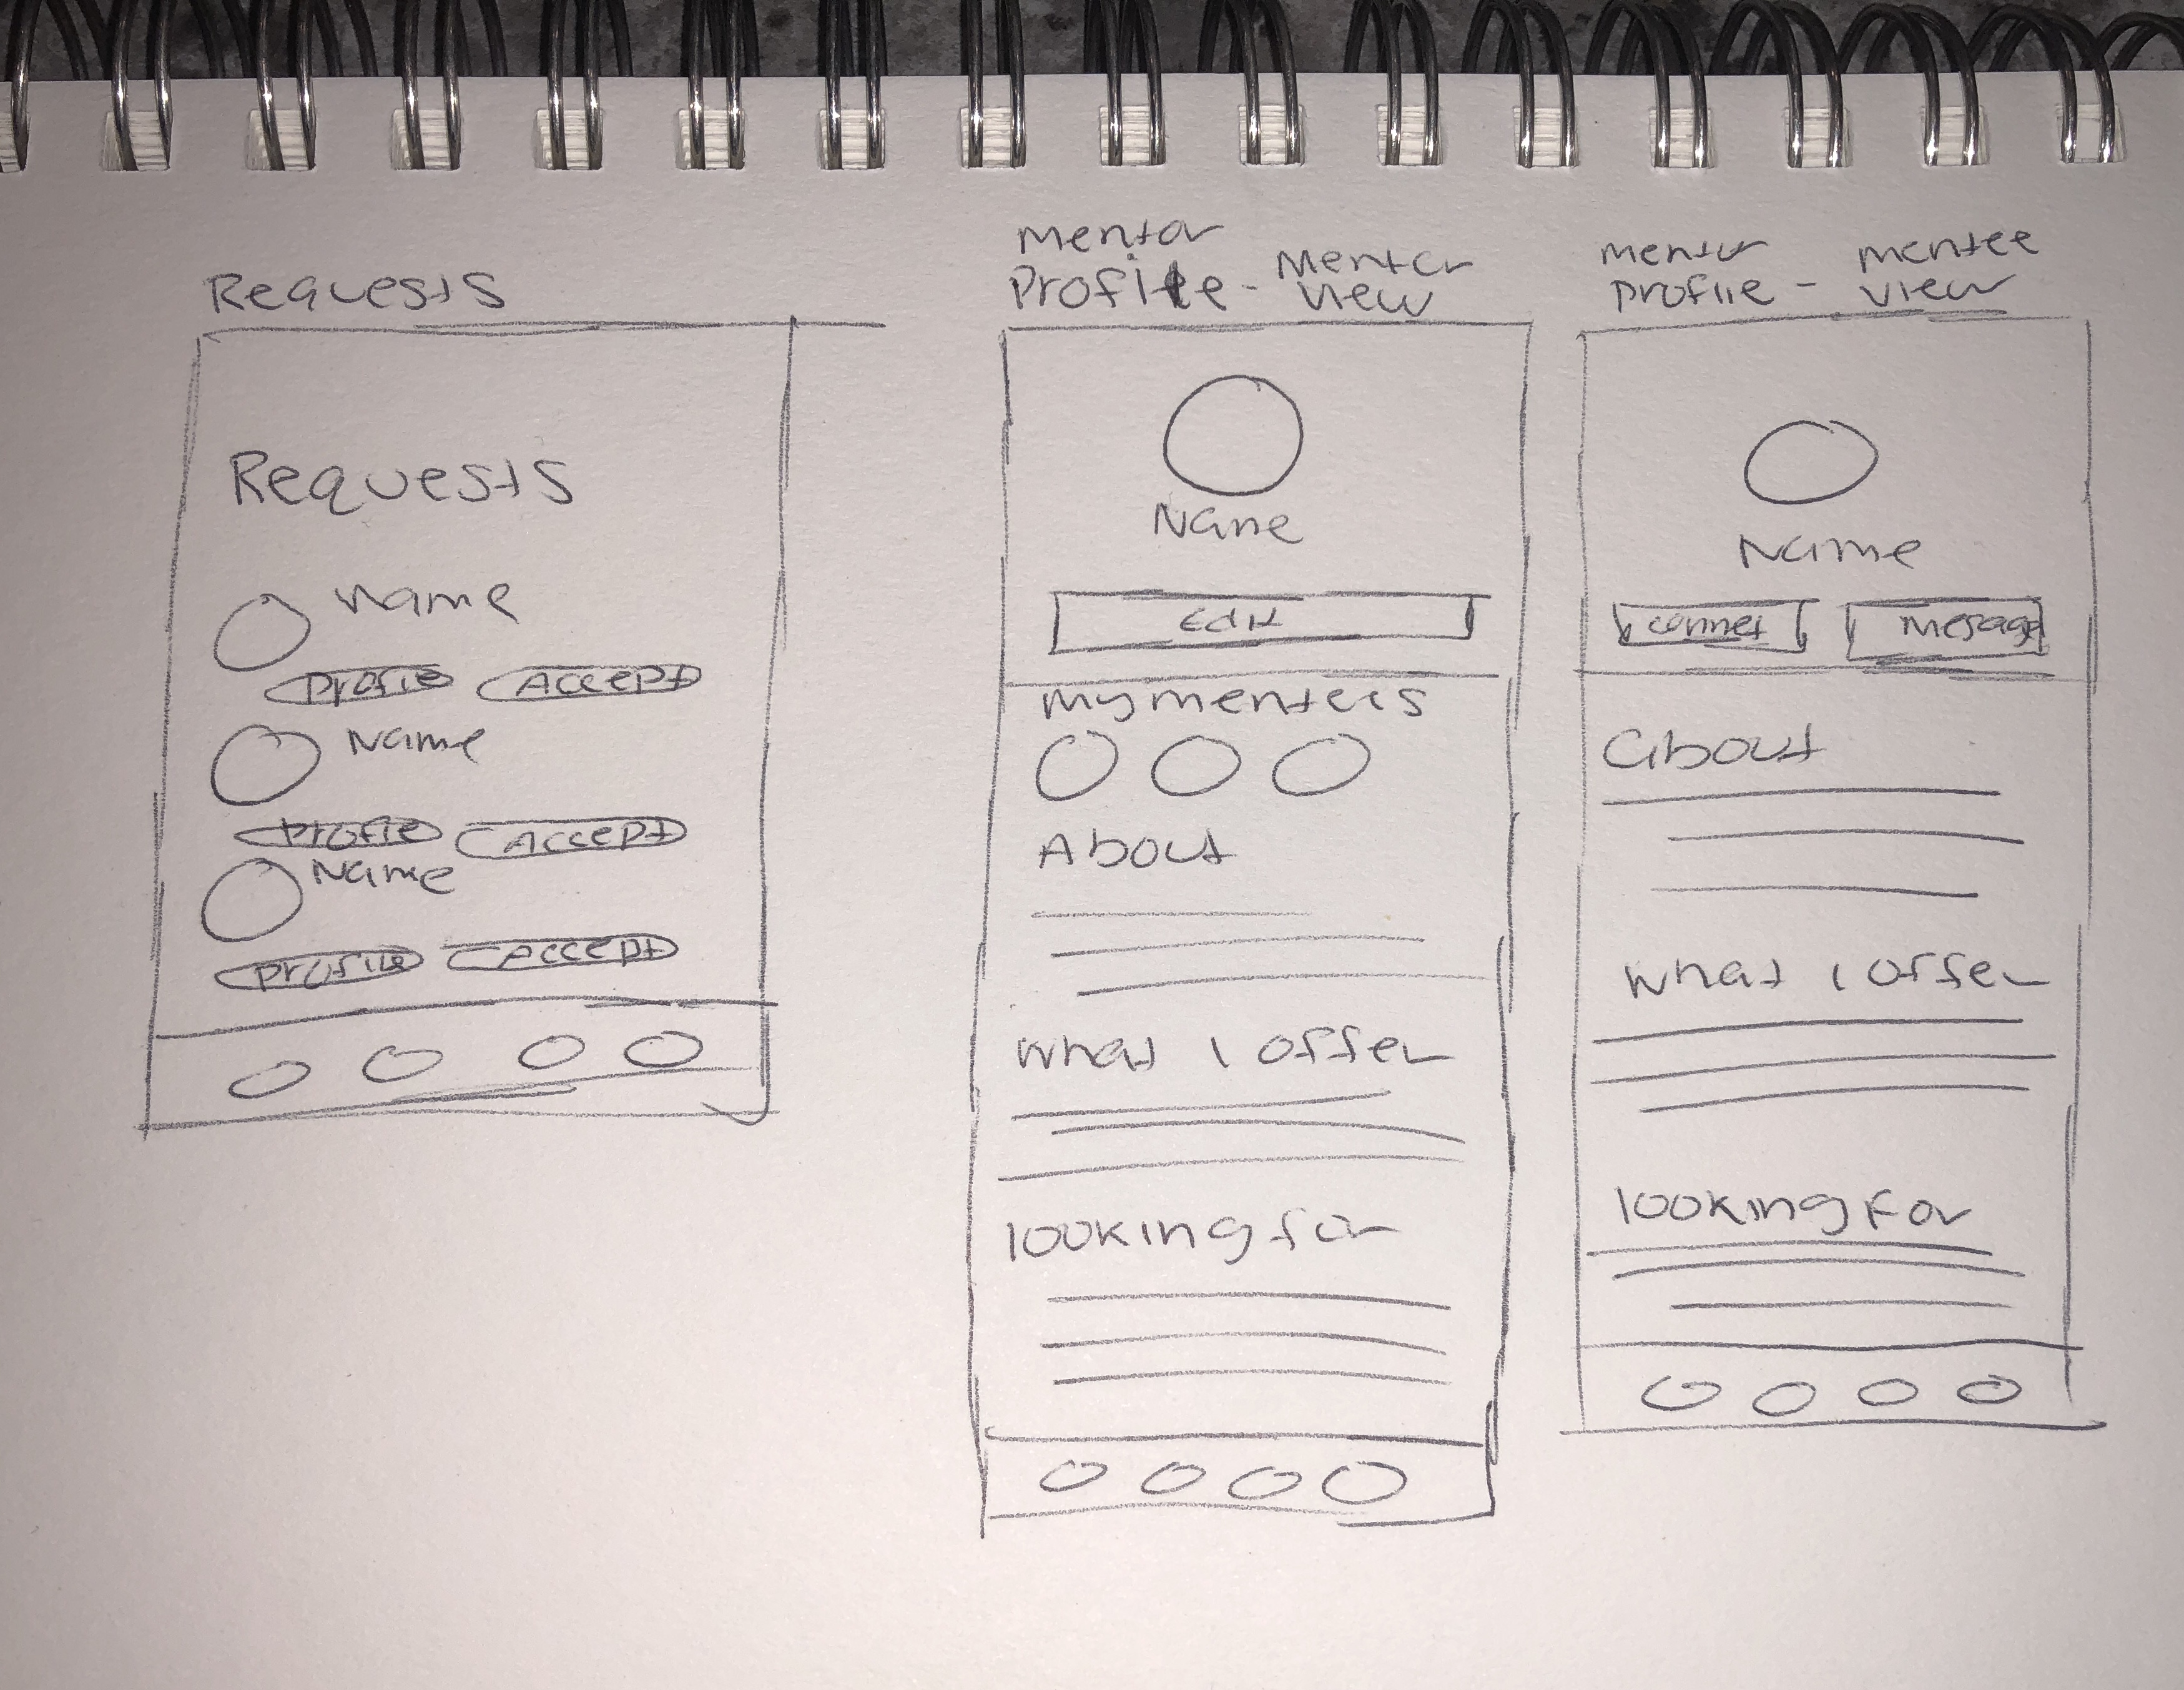 Requests
Requests
Name
Profile Accept
Name
Profile Accept
Name
Profile Accept
Mentor
Profile - Mentor
View
Name
Edit
My mentees
About
What I offer
looking for
Mentor mentee
Profile - View
Name
Connect Message
About
What I offer
looking for